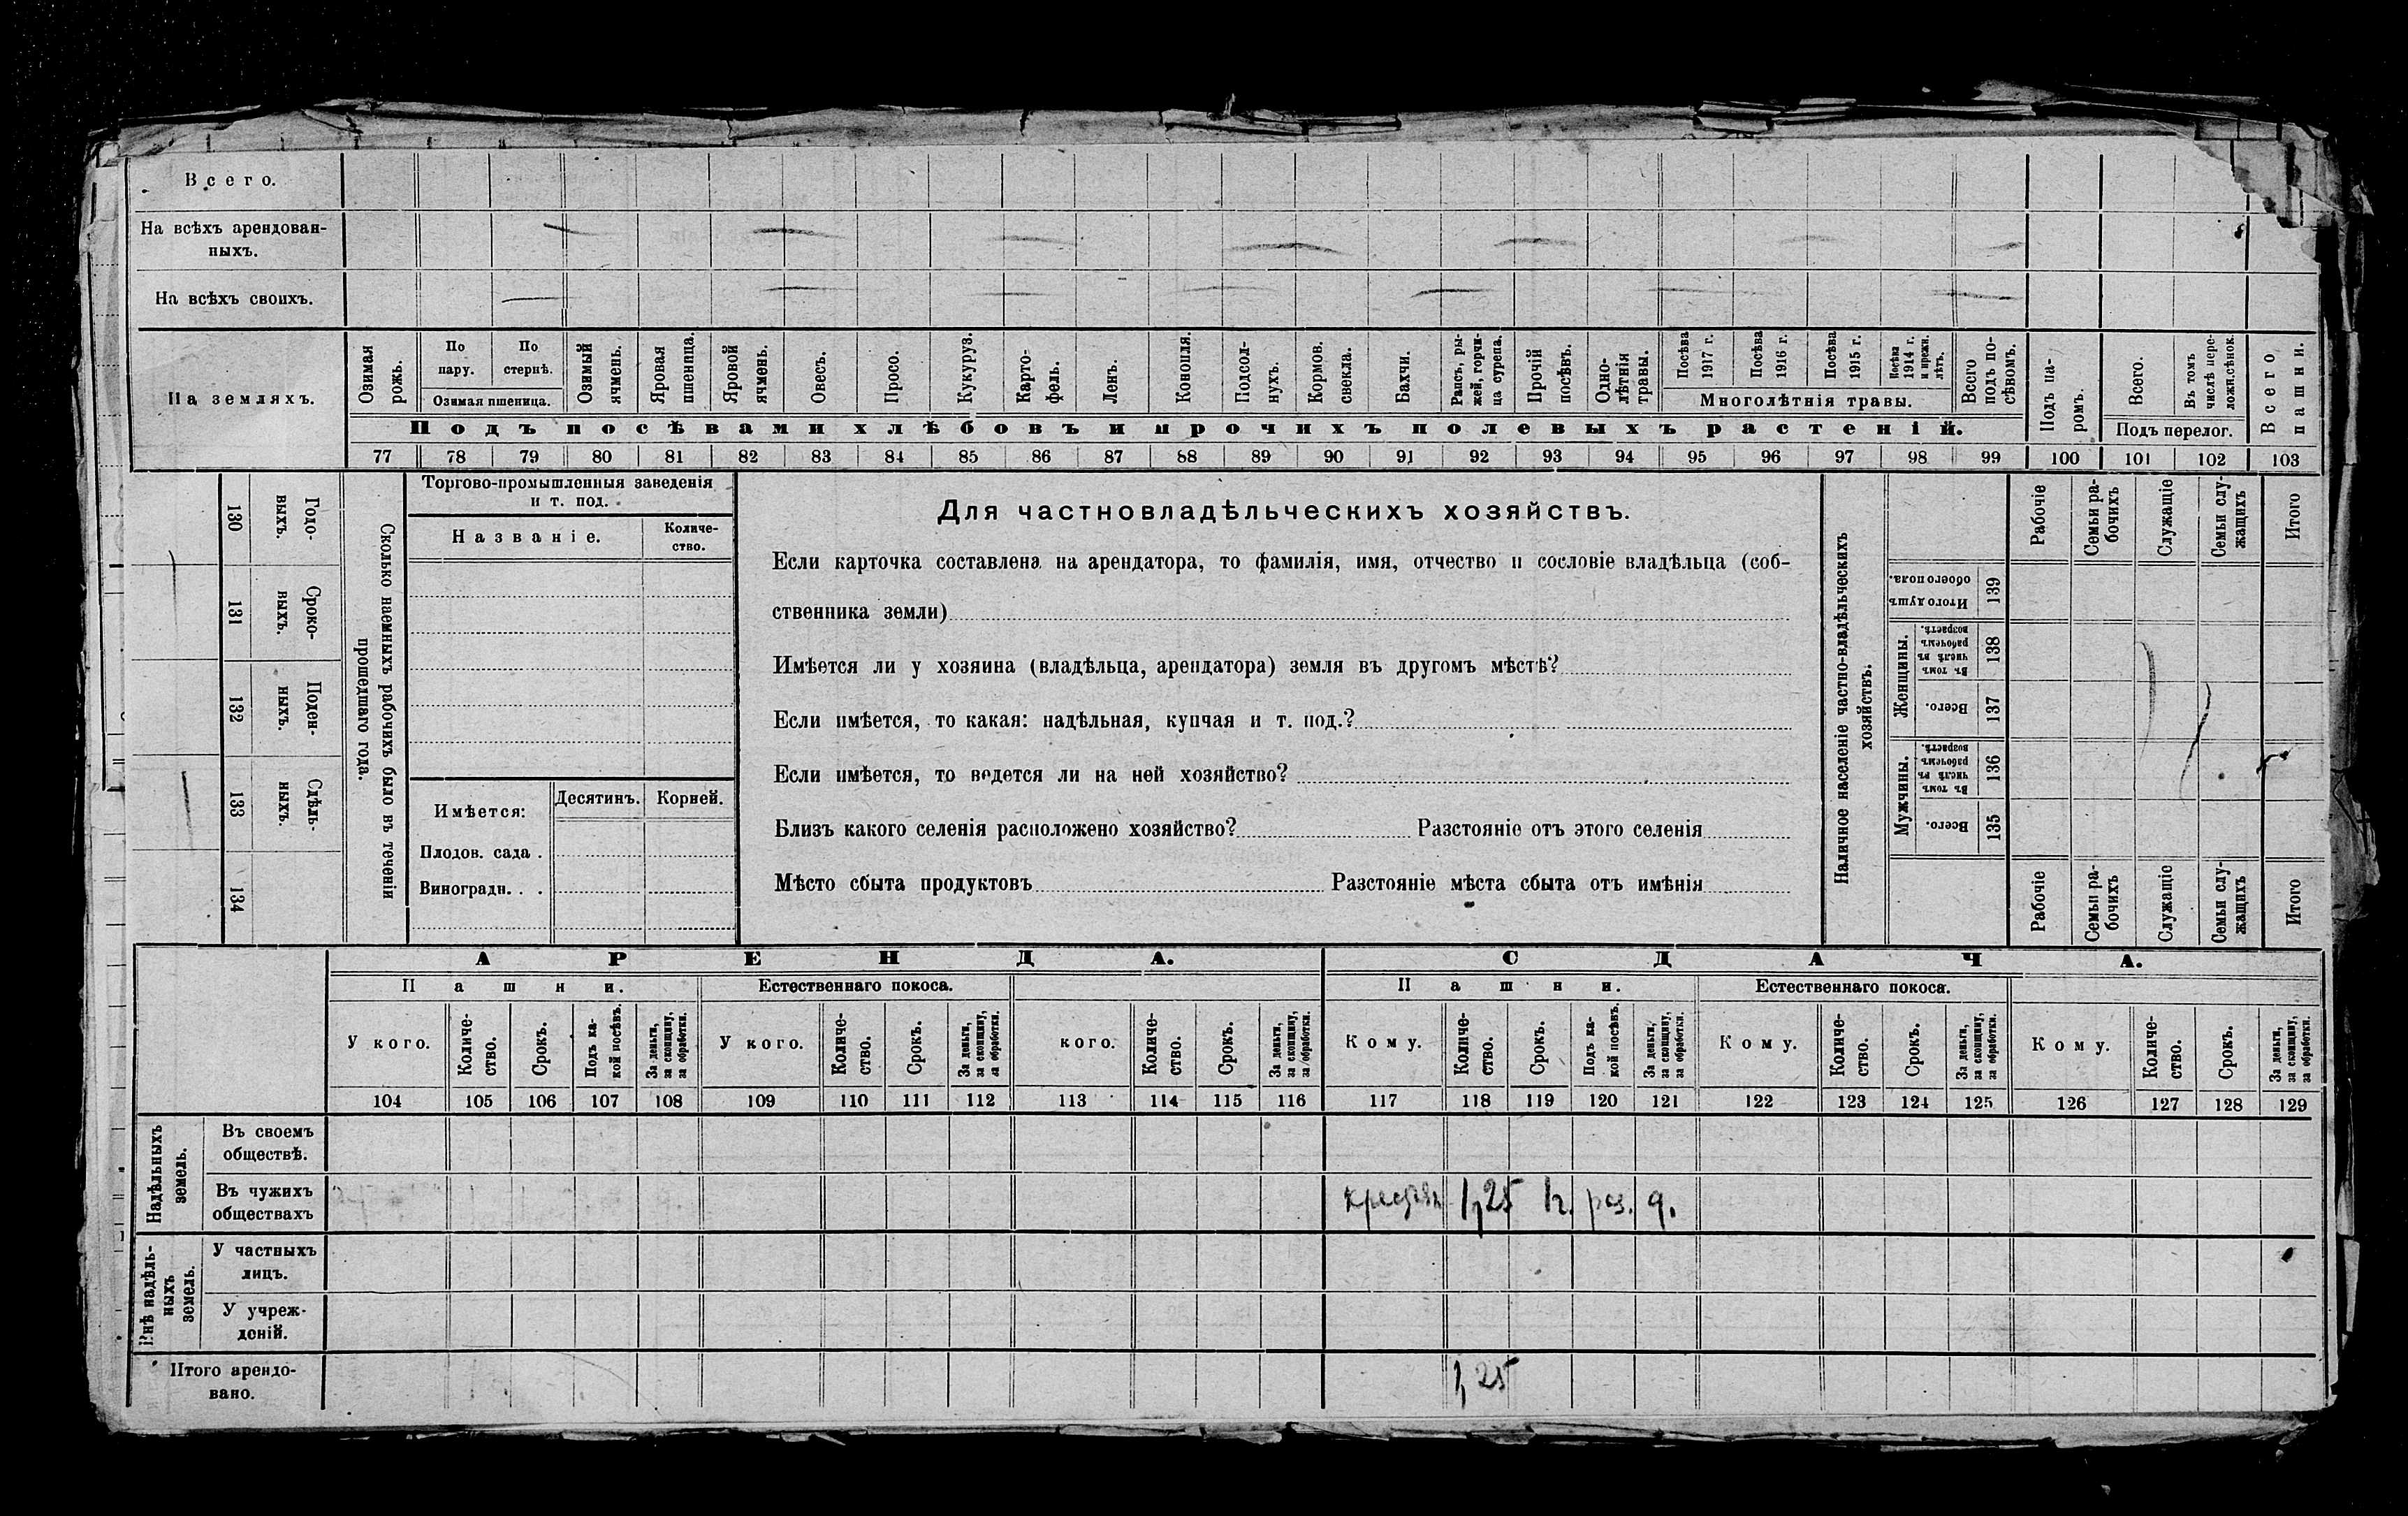 Всего.
На всѣхъ арендован-
ныхъ.
На всѣхъ своихъ.
На земляхъ.
Озимая рожь.
По пару.
По стернѣ.
Озимая пшеница.
Озимый ячмень.
Яровая пшеница.
Яровой ячмень.
Овесъ.
Просо.
Кукуруз.
Карто-
фель.
Ленъ.
Конопля.
Подсол-
нухъ.
Кормов. свекла.
Бахчи.
Рапсъ, ры-
жей, горчи-
ца сурепа.
Прочій посѣвъ.
Одно-
лѣтнія травы.
Посѣва 1917 г.
Посѣва 1916 г.
Посѣва 1915 г.
Посѣва 1914 г. и прежн. лѣтъ.
Многолѣтнія травы.
Всего подъ по-
сѣвомъ.
Подъ па-
ромъ.
Всего.
Въ томъ числѣ пере-
ложн.сѣнок.
Подъ перелог.
Всего пашни.
Подъ посѣвами хлѣбовъ и прочихъ полевыхъ растеній.
77 78 79 80 81 82 83 84 85 86 87 88 89 90 91 92 93 94 95 96 97 98 99 100 101 102 103
130 Годо-
выхъ.
131 Сроко-
выхъ.
132 Поден-
ныхъ.
133 Сдѣль-
ныхъ.
134
Сколько наемныхъ рабочихъ было въ теченіи
прошедшаго года.
Торгово-промышленныя заведенія
и т. под.
Названіе.
Количе-
ство.
Имѣется:
Десятинъ.
Корней.
Плодов. сада .
Виноградн. . .
Для частновладѣльческихъ хозяйствъ.
Если карточка составлена на арендатора, то фамилія, имя, отчество и сословіе владѣльца (соб-
ственника земли)
Имѣется ли у хозяина (владѣльца, арендатора) земля въ другомъ мѣстѣ?
Если имѣется, то какая: надѣльная, купчая и т. под.?
Если имѣется, то ведется ли на ней хозяйство?
Близъ какого селенія расположено хозяйство? Разстояніе отъ этого селенія
Мѣсто сбыта продуктовъ Разстояніе мѣста сбыта отъ имѣнія
Наличное населеніе частно-владѣльческихъ
хозяйствъ.
Рабочіе
Семьи ра-
бочихъ
Служащіе
Семьи слу-
жащихъ
Итого
Итого душъ
обоего пола.
139
Женщины.
Въ томъ числѣ въ рабочемъ возрастѣ.
138
Всего.
137
Мужчины.
Въ томъ числѣ въ рабочемъ возрастѣ.
136
Всего.
135
Рабочіе
Семьи ра-
бочихъ
Служащіе
Семьи слу-
жащихъ
Итого
АРЕНДА.
СДАЧА.
Пашни.
Естественнаго покоса.
Пашни.
Естественнаго покоса.
У кого.
Количе-
ство.
Срокъ.
Подъ ка-
кой посѣвъ.
За деньги,
за скопщину,
за обработки.
У кого.
Количе-
ство.
Срокъ.
За деньги,
за скопщину,
за обработки.
кого.
Количе-
ство.
Срокъ.
За деньги,
за скопщину,
за обработки.
Кому.
Количе-
ство.
Срокъ.
Подъ ка-
кой посѣвъ.
За деньги,
за скопщину,
за обработки.
Кому.
Количе-
ство.
Срокъ.
За деньги,
за скопщину,
за обработки.
Кому.
Количе-
ство.
Срокъ.
За деньги,
за скопщину,
за обработки.
104 105 106 107 108 109 110 111 112 113 114 115 116 117 118 119 120 121 122 123 124 125 126 127 128 129
Надѣльныхъ
земель.
Въ своемъ
обществѣ.
Въ чужихъ
обществахъ
1,25 раз.
Внѣ надѣль-
ныхъ
земель.
У частныхъ
лицъ.
У учреж-
деній.
Итого арендо-
вано.
1,25